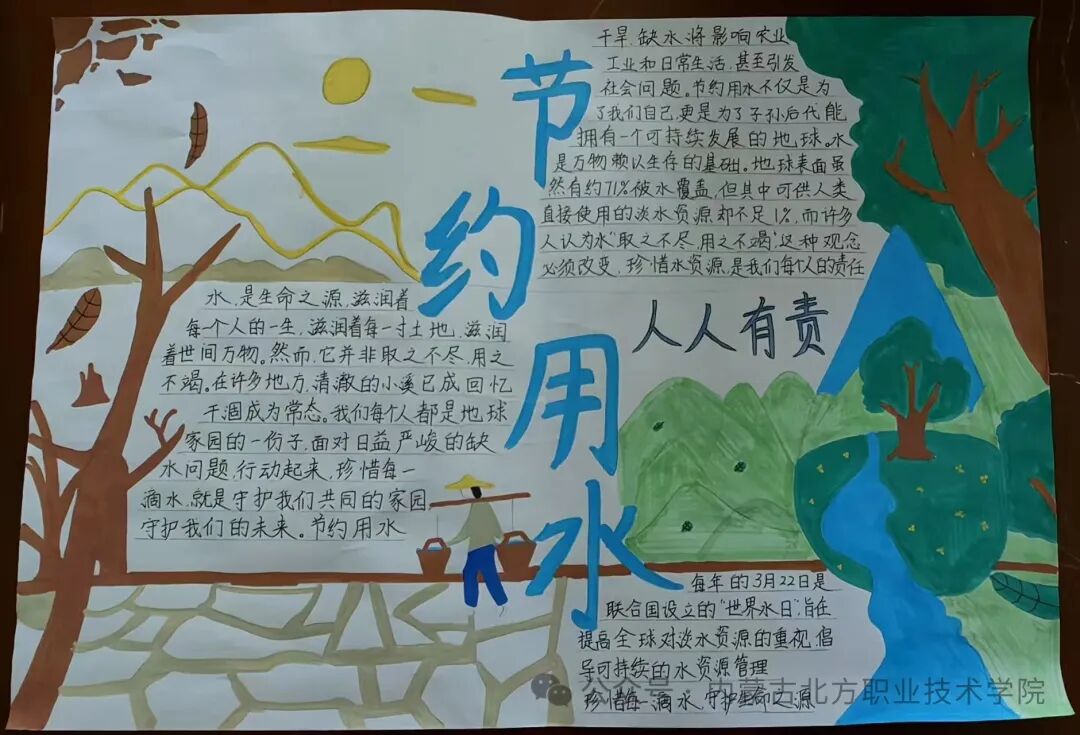 节约用水
人人有责
水,是生命之源,滋润着
每一个人的一生,滋润着每一寸土地,滋润
着世间万物。然而,它并非取之不尽,用之
不竭。在许多地方,清澈的小溪已成回忆
干涸成为常态。我们每个人都是地球
家园的一份子,面对日益严峻的缺
水问题,行动起来,珍惜每一
滴水,就是守护我们共同的家园,
守护我们的未来。节约用水
干旱、缺水将影响农业
工业和日常生活,甚至引发
社会问题。节约用水不仅是为
了我们自己,更是为了子孙后代能
拥有一个可持续发展的地球。水
是万物赖以生存的基础。地球表面虽
然有约71%被水覆盖,但其中可供人类
直接使用的淡水资源却不足1%,而许多
人认为水“取之不尽,用之不竭”这种观念
必须改变,珍惜水资源,是我们每个人的责任
每年的3月22日是
联合国设立的“世界水日”,旨在
提高全球对淡水资源的重视,倡
导可持续的水资源管理
珍惜每一滴水,守护生命之源
公众号·内蒙古北方职业技术学院